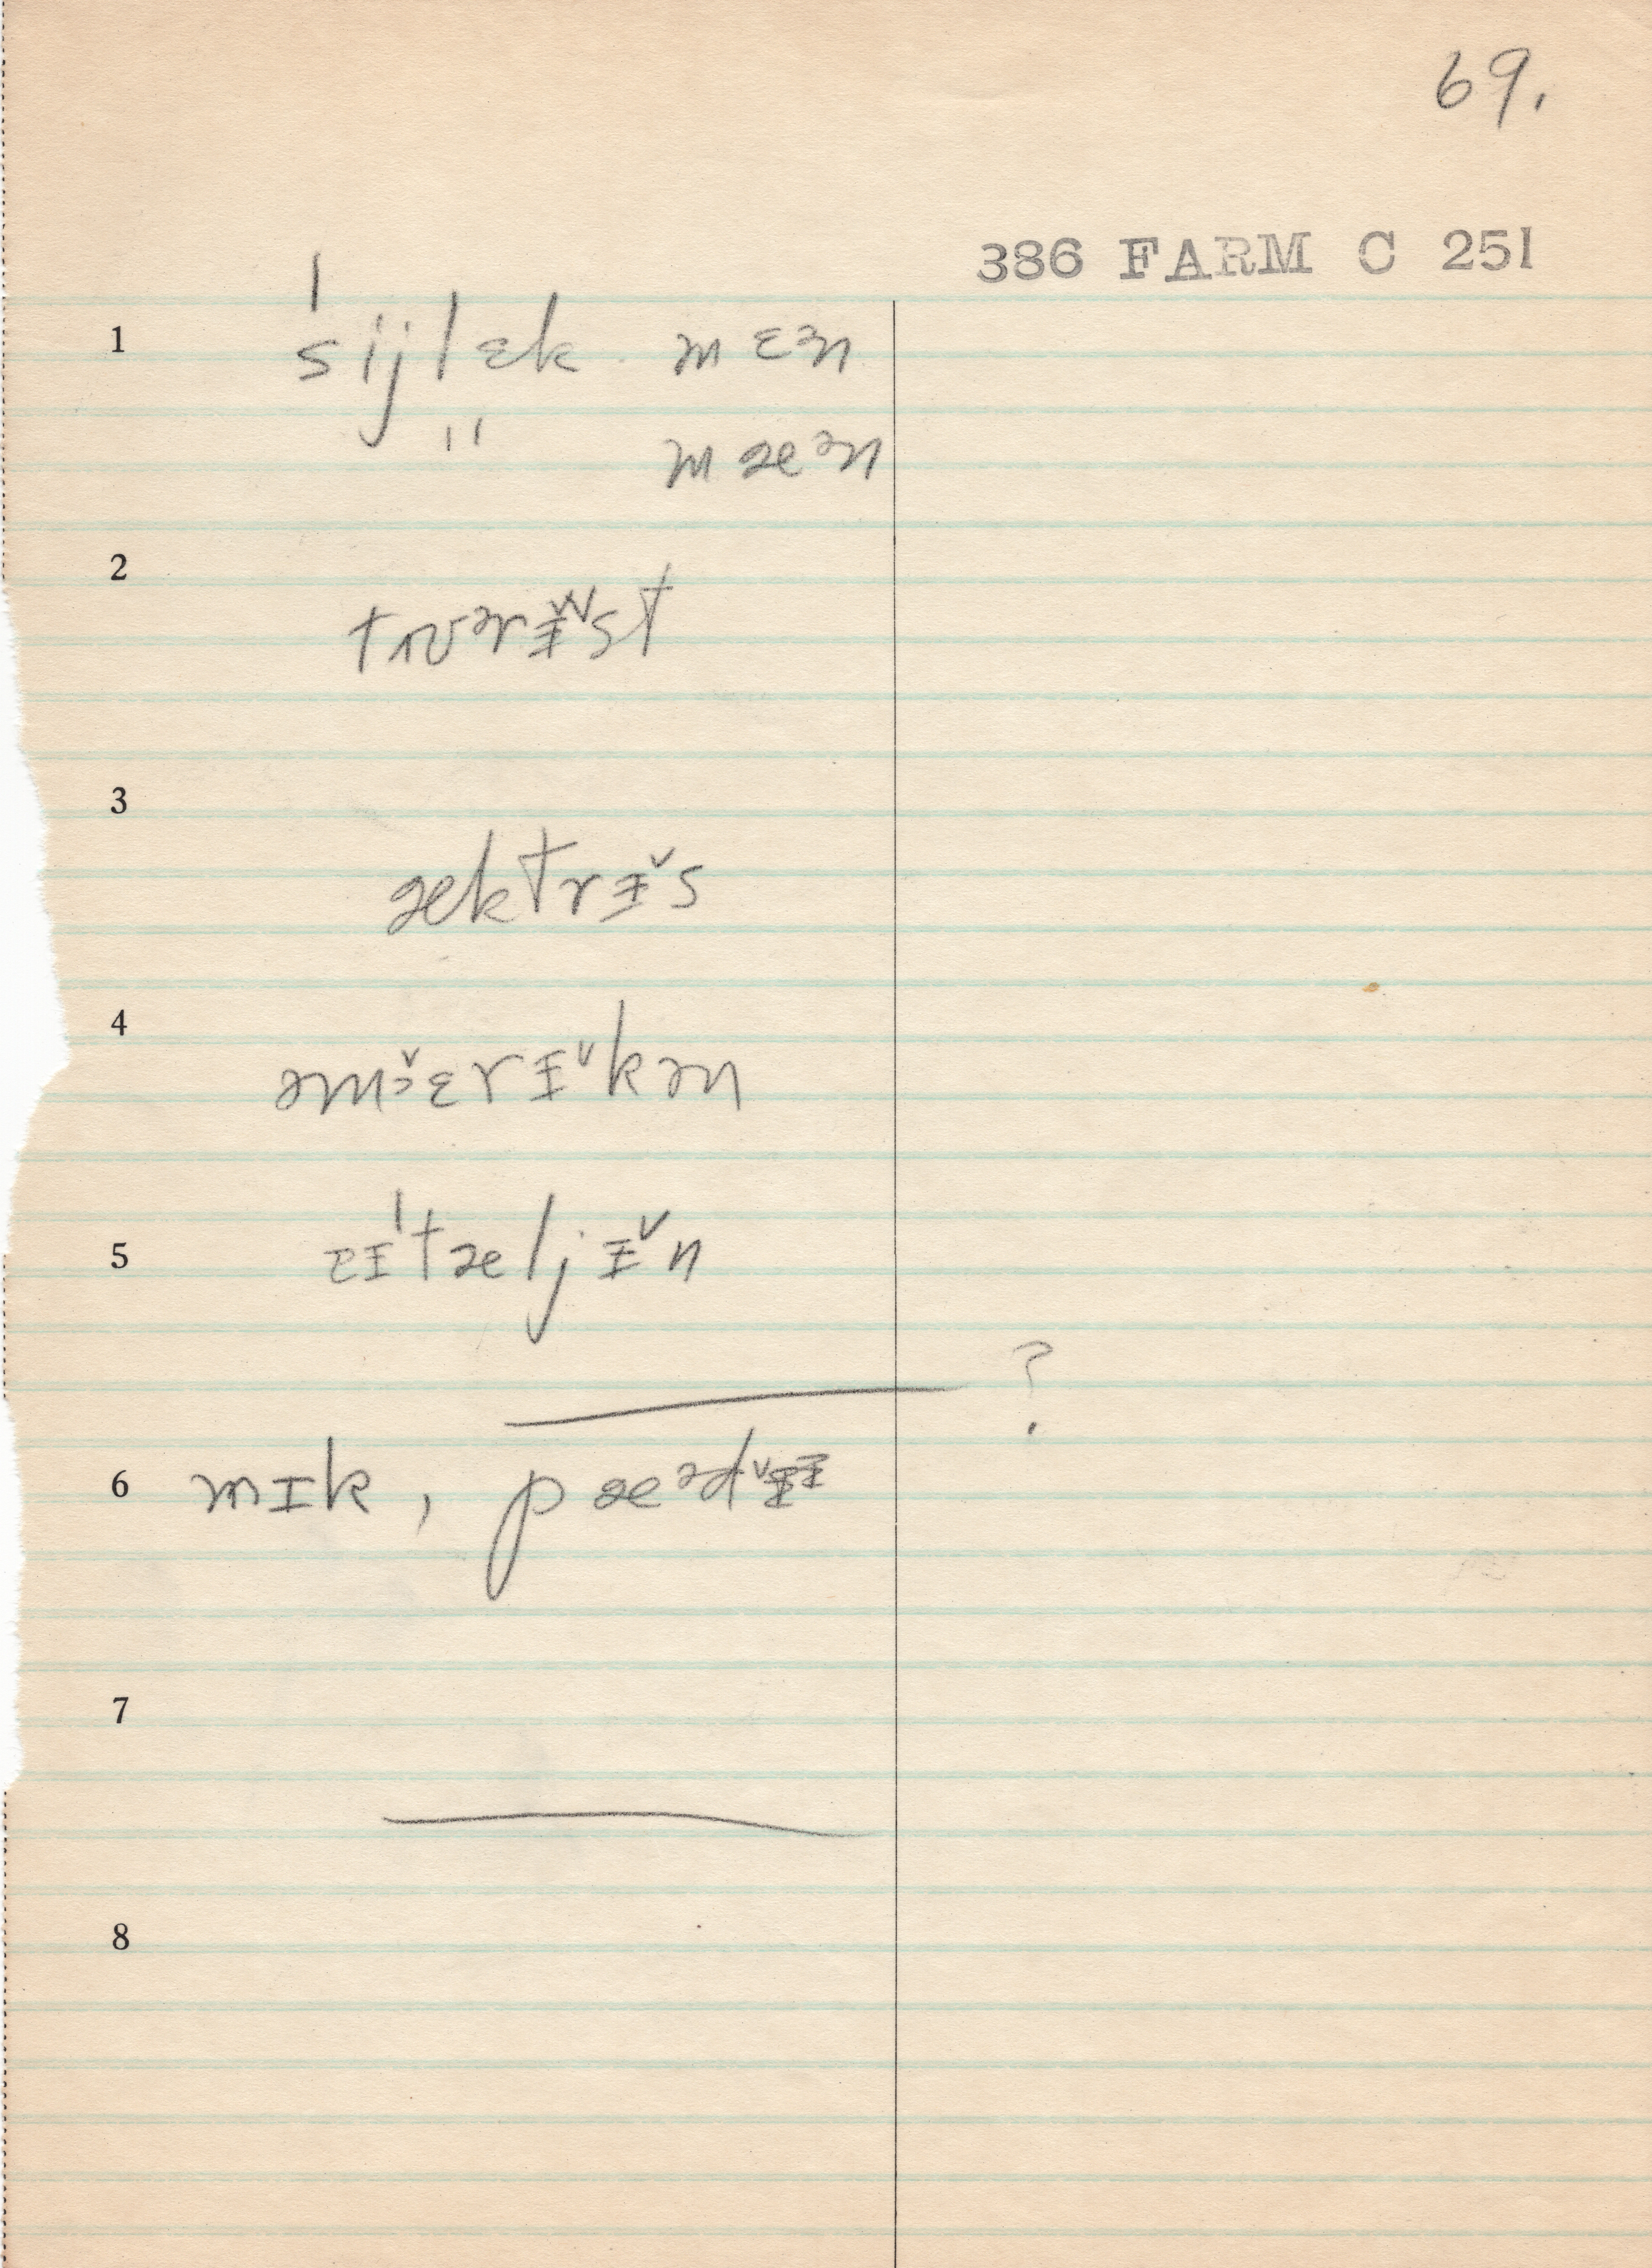 69.
386 FARM C 251
1 ˈsijlɛk mɛᵊn
" mæᵊn
2 tʊərɨ˅˅st
3 æktrɨ˅s
4 əmɛrɨ˅kən
5 ɪˈtæljɨ˅n
?
6 mɪk, pæᵊd˅ɨ
7
8